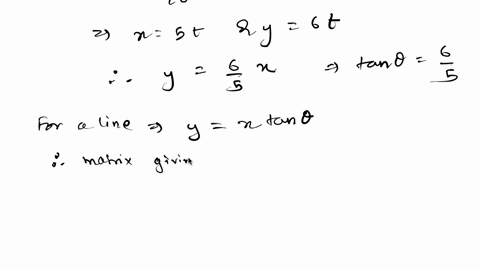 ⇒ x = 5t & y = 6t
∴ y = 6/5 x ⇒ tanθ = 6/5
For a line ⇒ y = x tanθ
∴ matrix givin